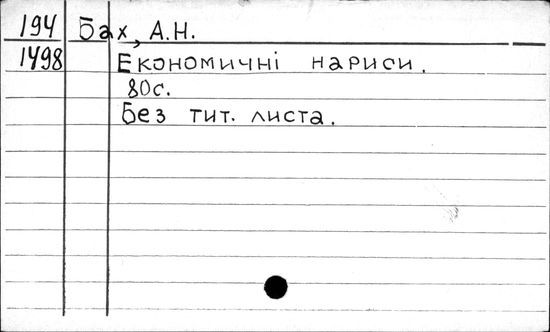 194 Бах, А.Н.
1498 Економичні нариси.
80с.
Без тит. листа.